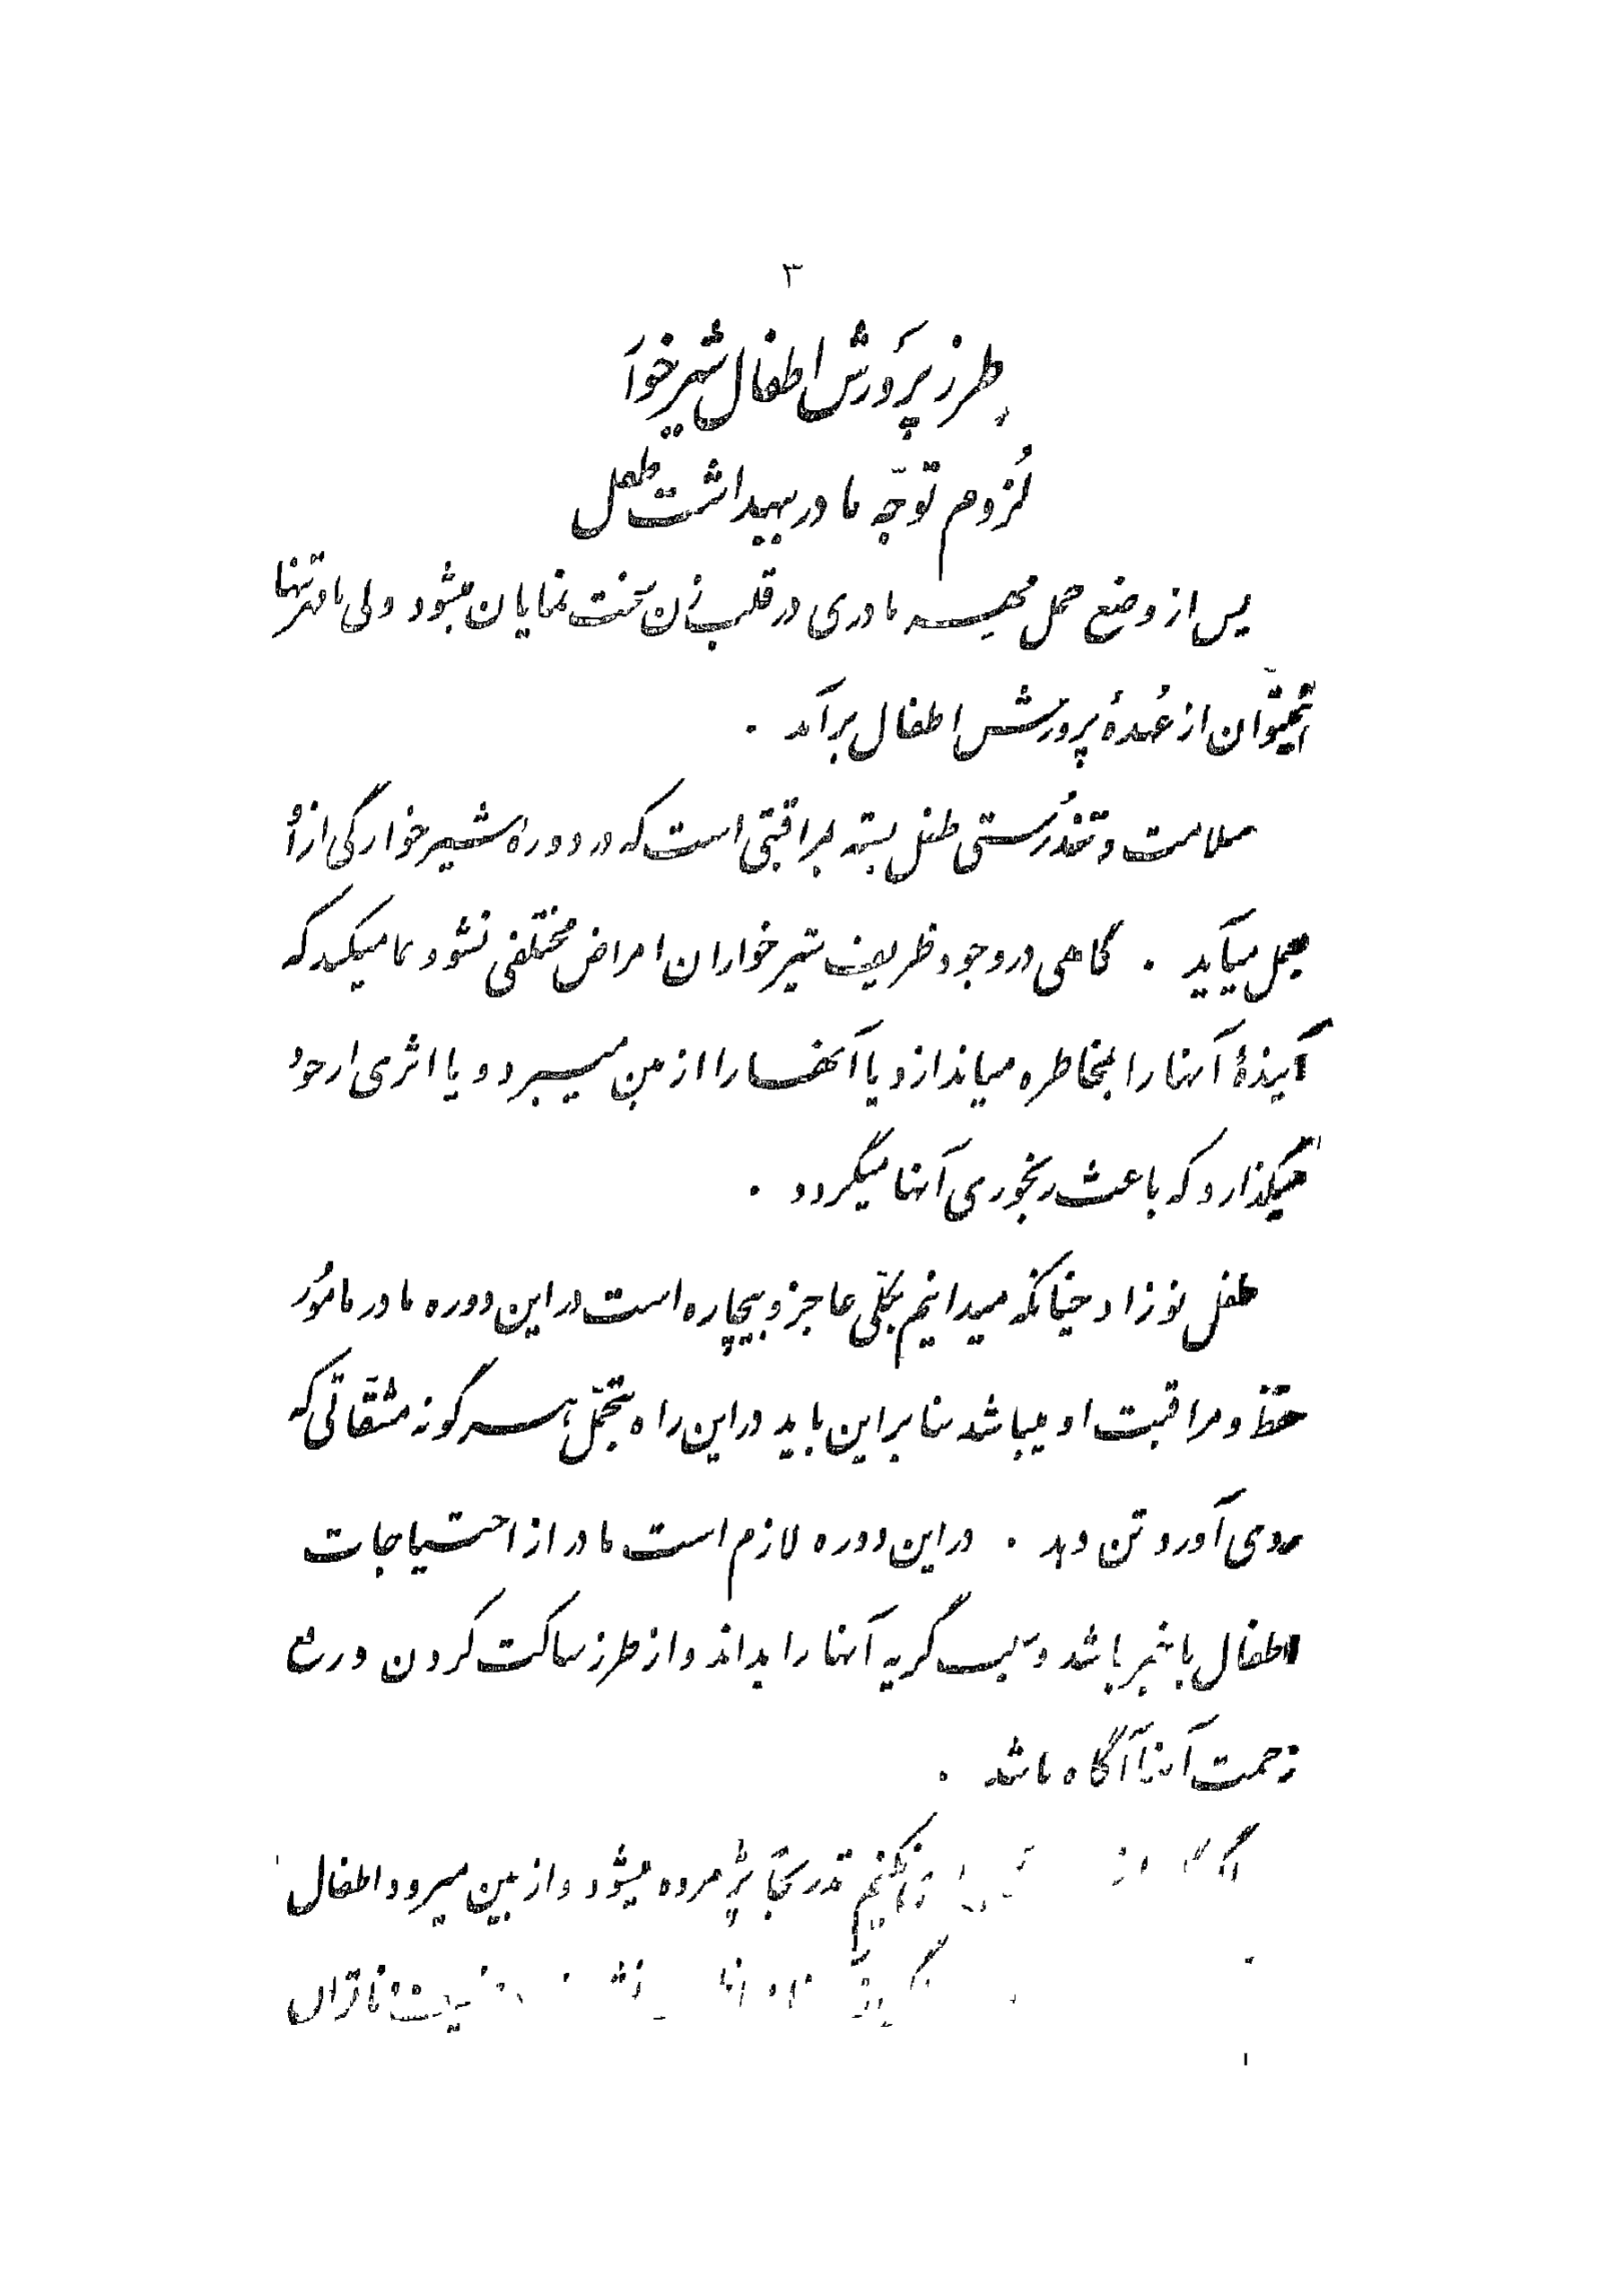 ۳
طرز پرورش اطفال شیرخوار
لزوم توجّه مادر ببهداشت طفل
پس از وضع حمل مهر مادری در قلب زن سخت نمایان میشود ولی با مهر تنها
نمیتوان از عُهدهٔ پرورش اطفال برآمد .
سلامت و تندرستی طفل بسته بمراقبتی است که در دورهٔ شیرخوارگی از او
بعمل میآید . گاهی در وجود ظریف شیرخواران امراض مختلفی نشو و نما میکند که
آیندهٔ آنها را بمخاطره میاندازد یا آنها را از بین میبرد و یا اثری از خود
میگذارد که باعث رنجوری آنها میگردد .
طفل نوزاد چنانکه میدانیم بکلّی عاجز و بیچاره است در این دوره مادر مأمور
حفظ و مراقبت او میباشد بنابراین باید در این راه بتحمّل هر گونه مشقّاتی که
روی آورد تن دهد . در این دوره لازم است مادر از احتیاجات
اطفال باخبر باشد و سبب گریه آنها را بداند و از طرز ساکت کردن و رفع
زحمت آنها آگاه باشد .
تدریجاً پژمرده میشود و از بین میرود اطفال
ناتوان